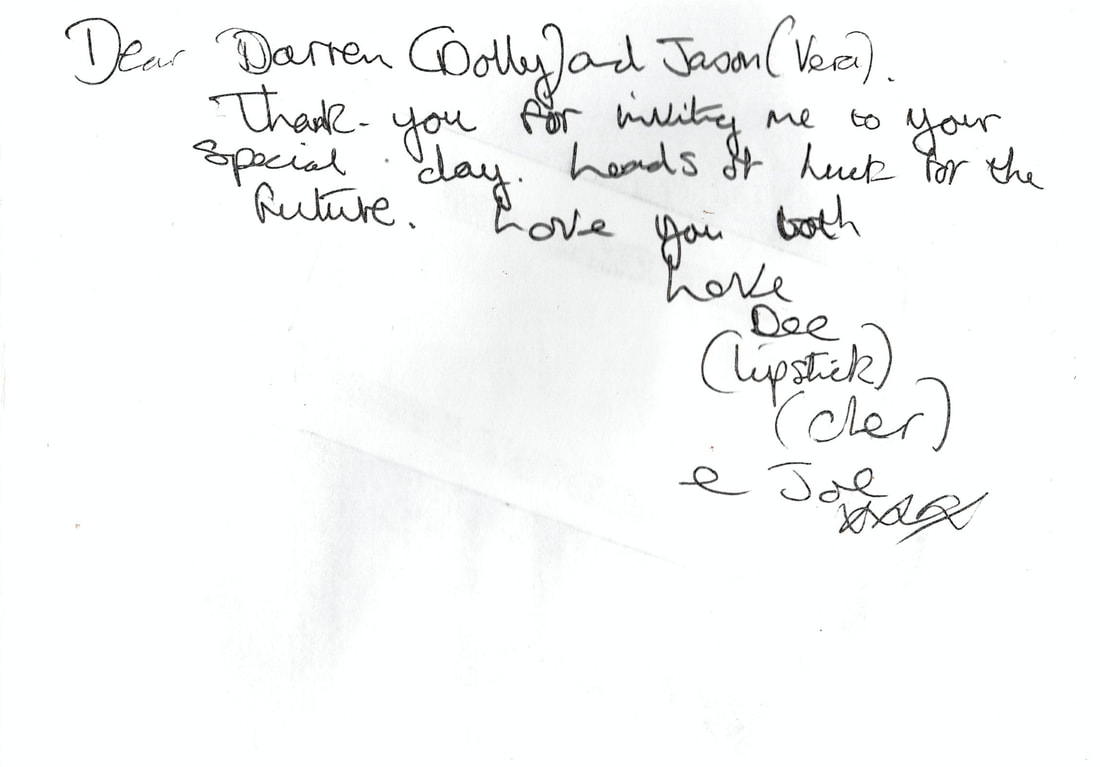 Dear Darren (Dolly) and Jason (Vera).
Thank-you for inviting me to your
special day. Loads of luck for the
future. Love you both
Love
Dee
(lipstick)
(cher)
e Joe
xxxx